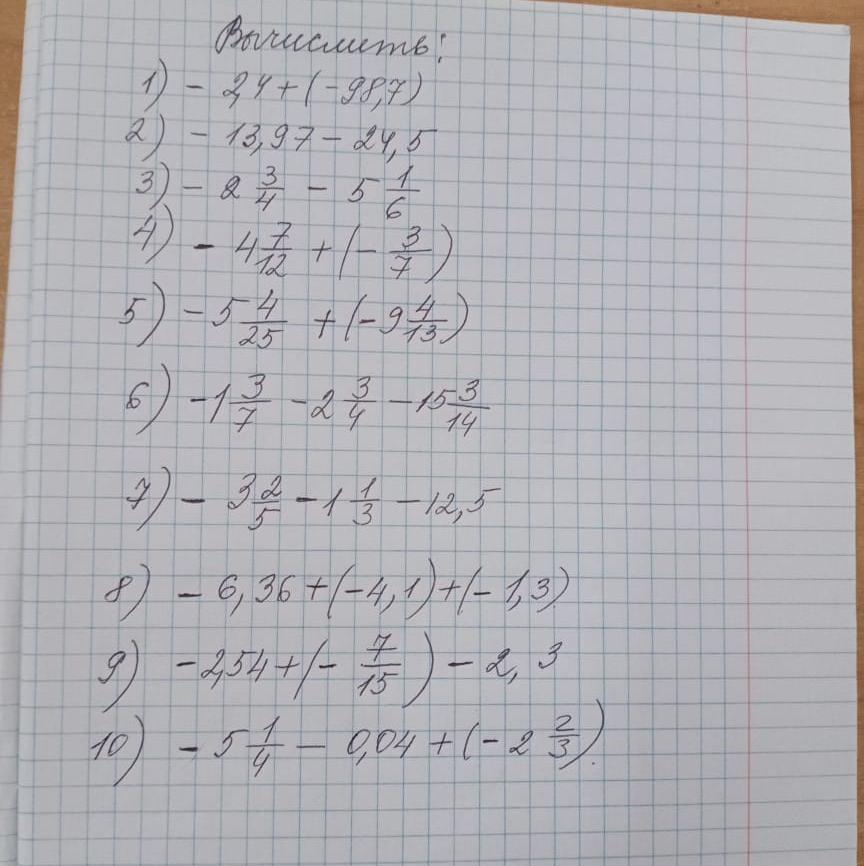 Вычислить:
1) - 2,4 + (-98,7)
2) - 13,97 - 24,5
3) - 2 3/4 - 5 1/6
4) - 4 7/12 + (- 3/7)
5) - 5 4/25 + (-9 4/13)
6) -1 3/7 - 2 3/4 - 15 3/14
7) - 3 2/5 - 1 1/3 - 12,5
8) - 6,36 + (-4,1) + (- 1,3)
9) -2,54 + (- 7/15) - 2,3
10) - 5 1/4 - 0,04 + (- 2 2/3).